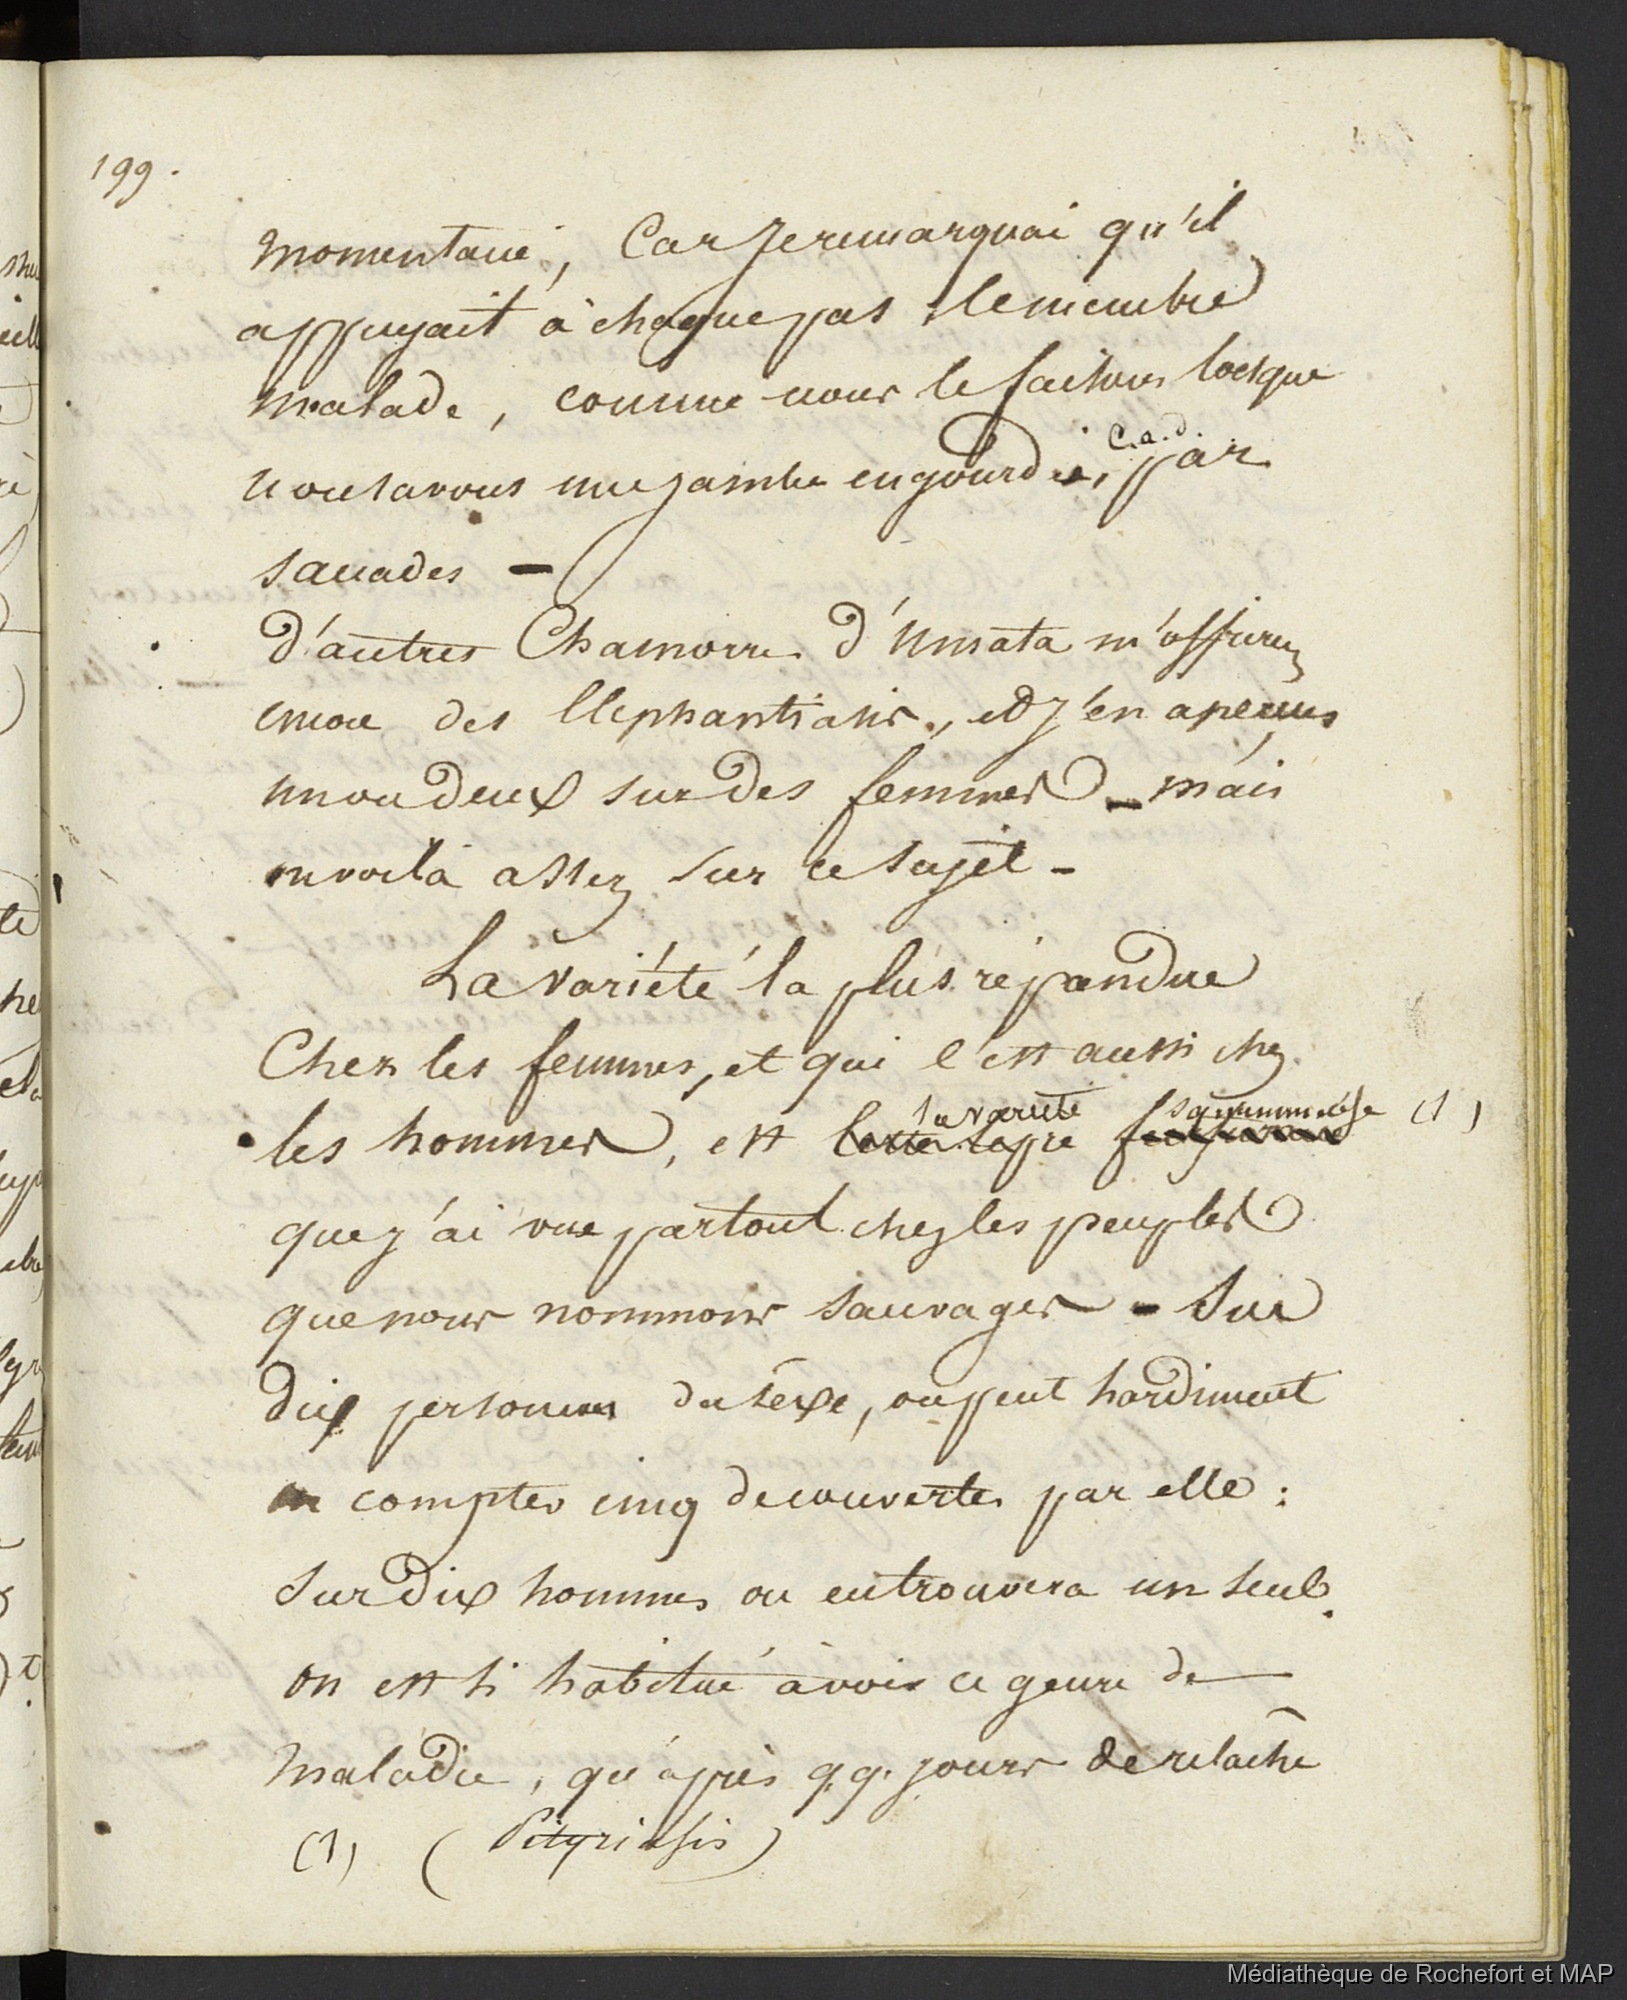 199.
momentané, Car Je remarquai qu'il
appuyait à chaque pas le membre
malade, comme nous le faisons lorsque
nous avons une jambe engourdie, c.a.d. par
sacades —
d'autres Chamorre d'Umata m'offrirent
encore des Elephantiasis, et J'en aperçus
un ou deux sur des femmes — mais
en voilà assez sur ce sujet —
La variété la plus répandue
Chez les femmes, et qui l'est aussi chez
les hommes, est la variété squammeuse (1)
que j'ai vue partout chez les peuples
que nous nommons sauvages — Sur
dix personnes du sèxe, on peut hardiment
en compter cinq découvertes par elle :
Sur dix hommes on en trouvera un seul.
on est si habitué à voir ce genre de
maladie, qu'après q.q. jours de relâche
(1) (Pityriasis)
Médiathèque de Rochefort et MAP